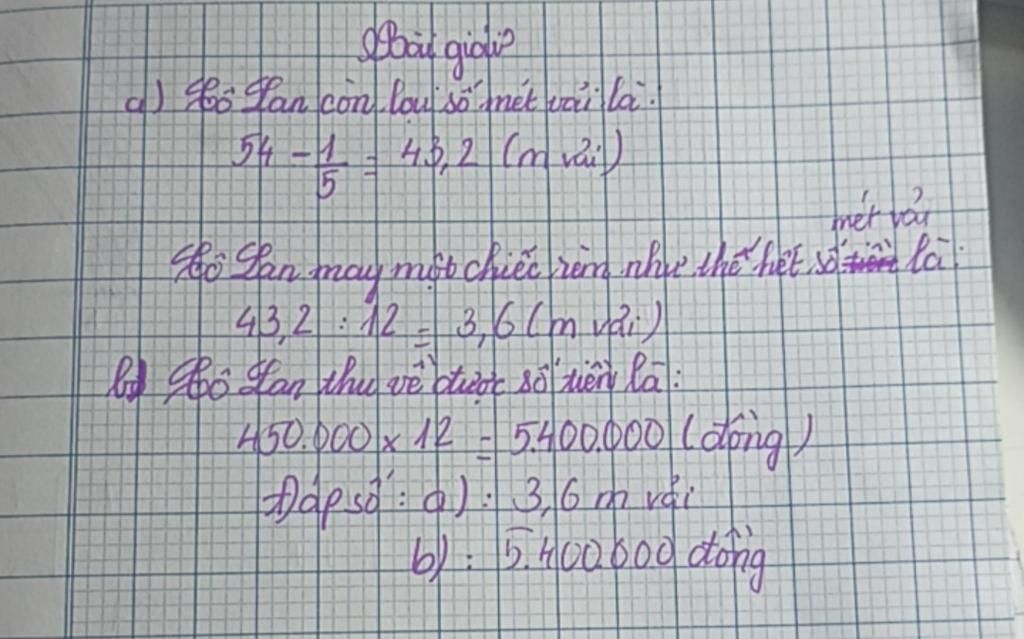 Bài giải
a) Cô Lan còn lại số mét vải là:
54 - 1/5 = 43,2 (m vải)
mét vải
Cô Lan may một chiếc rèm như thế hết số tiền là:
43,2 : 12 = 3,6 (m vải)
b) Cô Lan thu về được số tiền là:
450.000 x 12 = 5.400.000 (đồng)
Đáp số: a): 3,6 m vải
b): 5.400.000 đồng